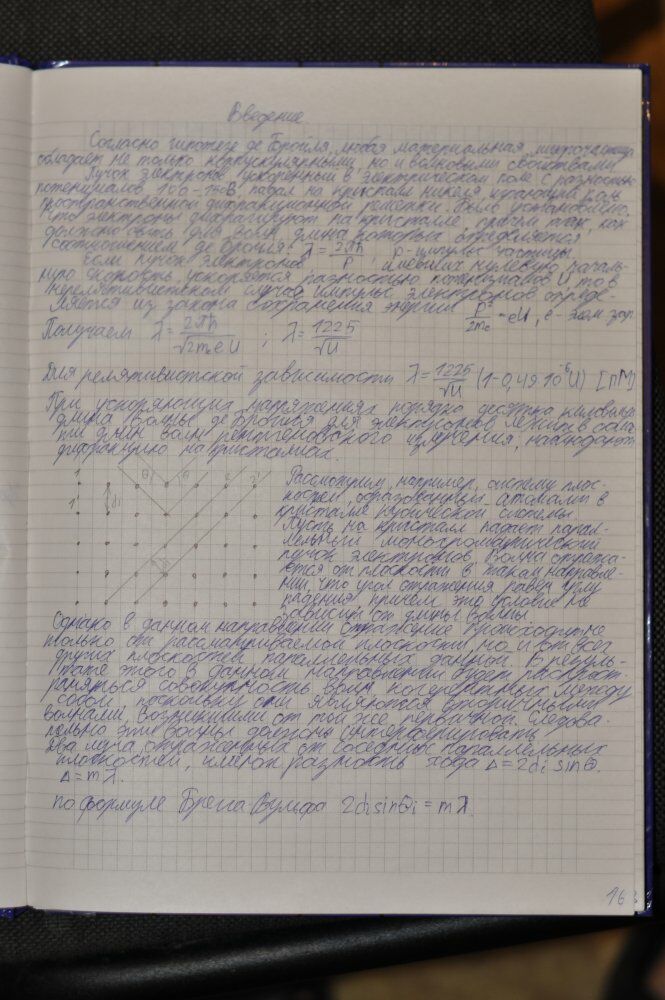 Введение.
Согласно гипотезе де Бройля, любая материальная микрочастица
обладает не только корпускулярными, но и волновыми свойствами
Пучок электронов ускоренный в электрическом поле с разностью
потенциалов 100 - 150В падал на кристалл никеля играющий
пространственной дифракционной решетки. Было установлено,
что электроны дифрагируют на кристалле, причем так, как
должно быть для волн, длина которых определяется
соотношением де Бройля: λ = 2πħ/p, p - импульс частицы.
Если пучок электронов имевших нулевую началь-
ную скорость ускоряется разностью потенциалов U то в
нерелятивистском случае импульс электронов опреде-
ляется из закона сохранения энергии p²/2m₀ = eU, e - элем зар
Получаем λ = 2πħ/√2m₀eU ; λ = 1225/√U
Для релятивистской зависимости λ = 1225/√U (1-0,49·10⁻⁶U) [пм]
При ускоряющих напряжениях порядка десятка киловольт
длина волны де Бройля для электронов лежит в обла-
сти длин волн рентгеновского излучения, наблюдают
дифракцию на кристаллах.
1 θ θ 2 2'
1' d₁
Рассмотрим, например, систему плос-
костей, образованных атомами в
кристалле кубической системы.
Пусть на кристалл падает парал-
лельный монохроматический
пучок электронов. Волна отража-
ются от плоскости в таком направле-
нии, что угол отражения равен углу
падения причем это условие не
зависит от длины волны.
Однако в данном направлении отражение происходит не
только от рассматриваемой плоскости, но и от всех
других плоскостей, параллельных данной. В резуль-
тате этого в данном направлении будет распрост-
раняться совокупность волн когерентных между
собой, поскольку они являются вторичными
волнами, возникшими от той же первичной. Следова-
тельно эти волны должны интерферировать
два луча, отраженных от соседних параллельных
плоскостей, имеют разность хода Δ = 2dᵢ sinΘ.
Δ = mλ.
По формуле Брега-Вульфа 2dᵢsinΘᵢ = mλ.